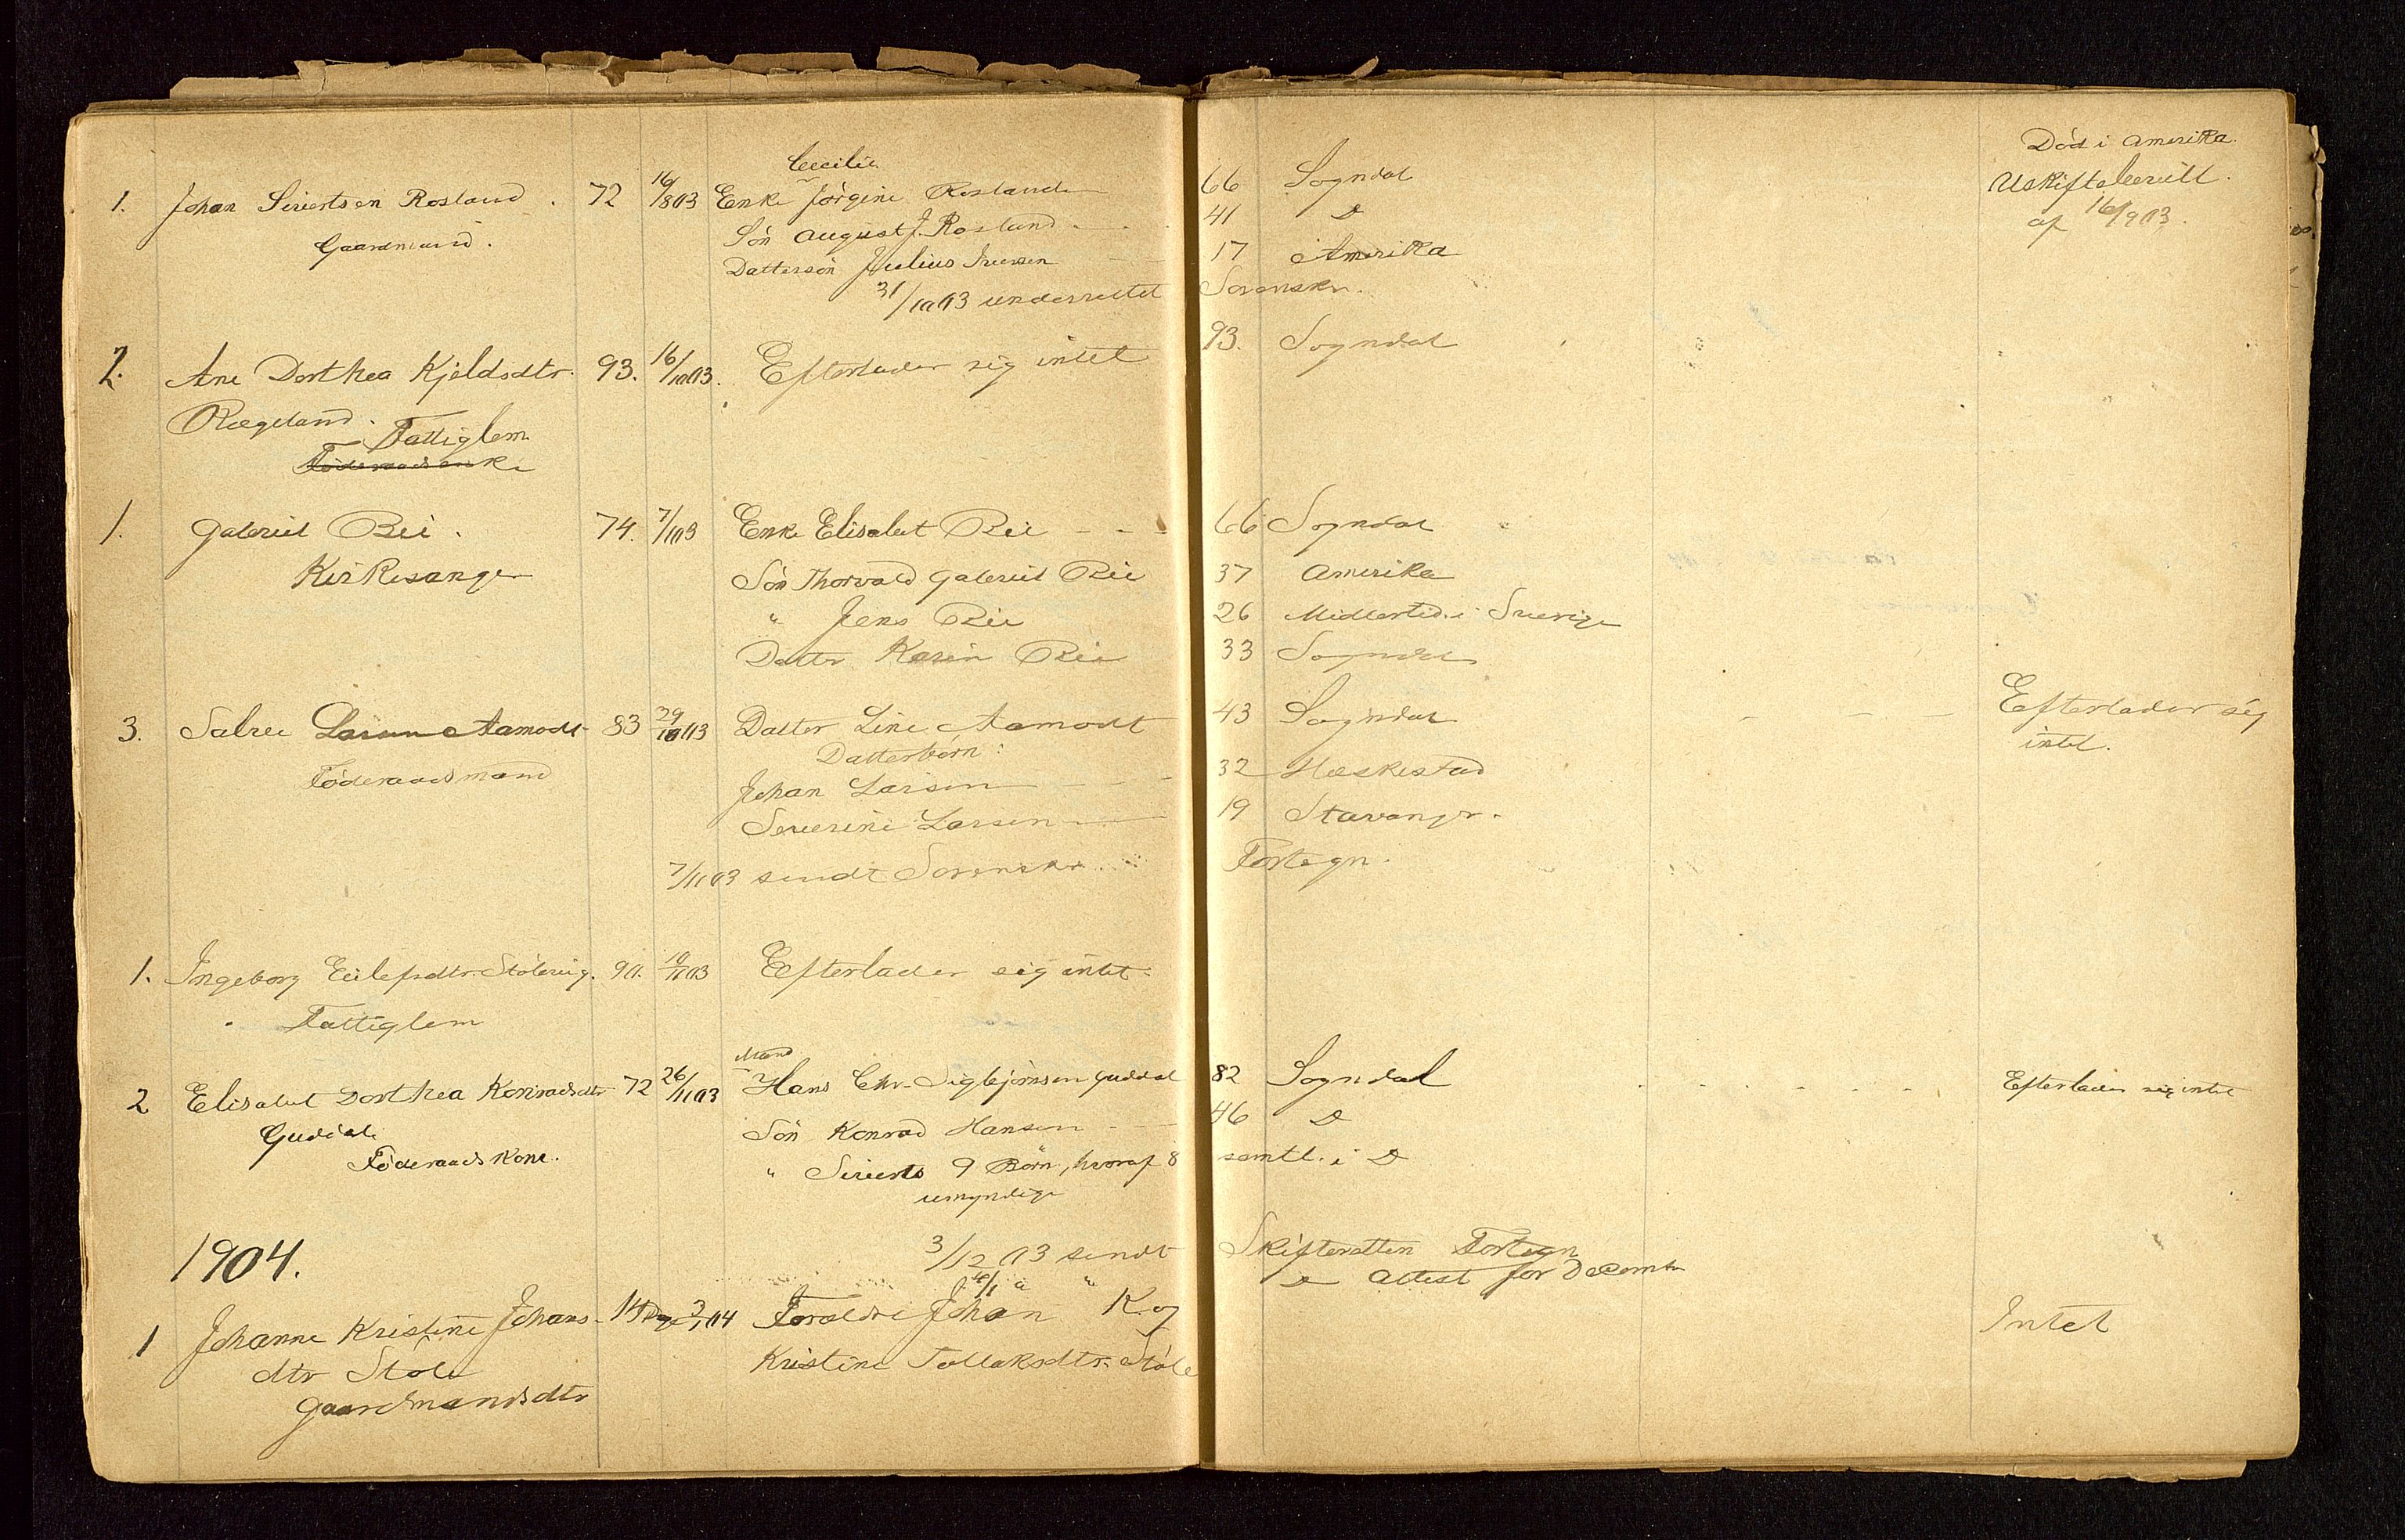 Cecilie
Død i Amerika
1. Johan Sivertsen Rosland. 72 16/8 03 Enke Jørgine Rosland 66 Sogndal Uskiftebevill.
Gaardmand. Søn August J. Rosland 41 Do af 16/9 03.
Dattersøn Julius Iversen 17 Amerika
31/10 03 underrettet Sorenskr.
2. Ane Dorthea Kjeldsdtr. 93. 16/10 03. Efterlader sig intet 93. Sogndal
Rægeland.
Fattiglem
Føderaadsenke
1. Gabriel Bei. 74. 7/10 3 Enke Elisabet Bei - - 66 Sogndal
Kirkesanger Søn Thorvald Gabriel Bei 37 Amerika
" Jens Bei 26 Midlertid. i Sverige
Datter Karin Bei 33 Sogndal
3. Salve Larsen Aamodt 83 29/10 03 Datter Line Aamodt 43 Sogndal - - - Efterlader sig
Føderaadsmand Datterbørn: intet.
Johan Larsen 32 Heskestad
Severine Larsen 19 Stavanger.
7/11 03 sendt Sorenskr. Fortegn.
1. Ingeborg Eilefsdtr. Stølerug. 90. 10/11 03 Efterlader sig intet.
Fattiglem
2 Elisabet Dorthea Konradsdtr 72 26/11 03 Mand Hans Chr. Sigbjørnsen Guddal 82 Sogndal Efterlader sig intet
Guddal Søn Konrad Hansen 46 Do
Føderaadskone. " Siverts 9 Børn, hvoraf 8 samtl. i Do
umyndige
3/12 03 sendt Skifteretten Fortegn
1904.
6/1 " " Do Attest for Decemb
1 Johanne Kristine Johans- 14 Dage 3/1 04 Forældre Johan K. og Intet
dtr Støle Kristine Tollaksdtr. Støle
Gaardmandsdtr